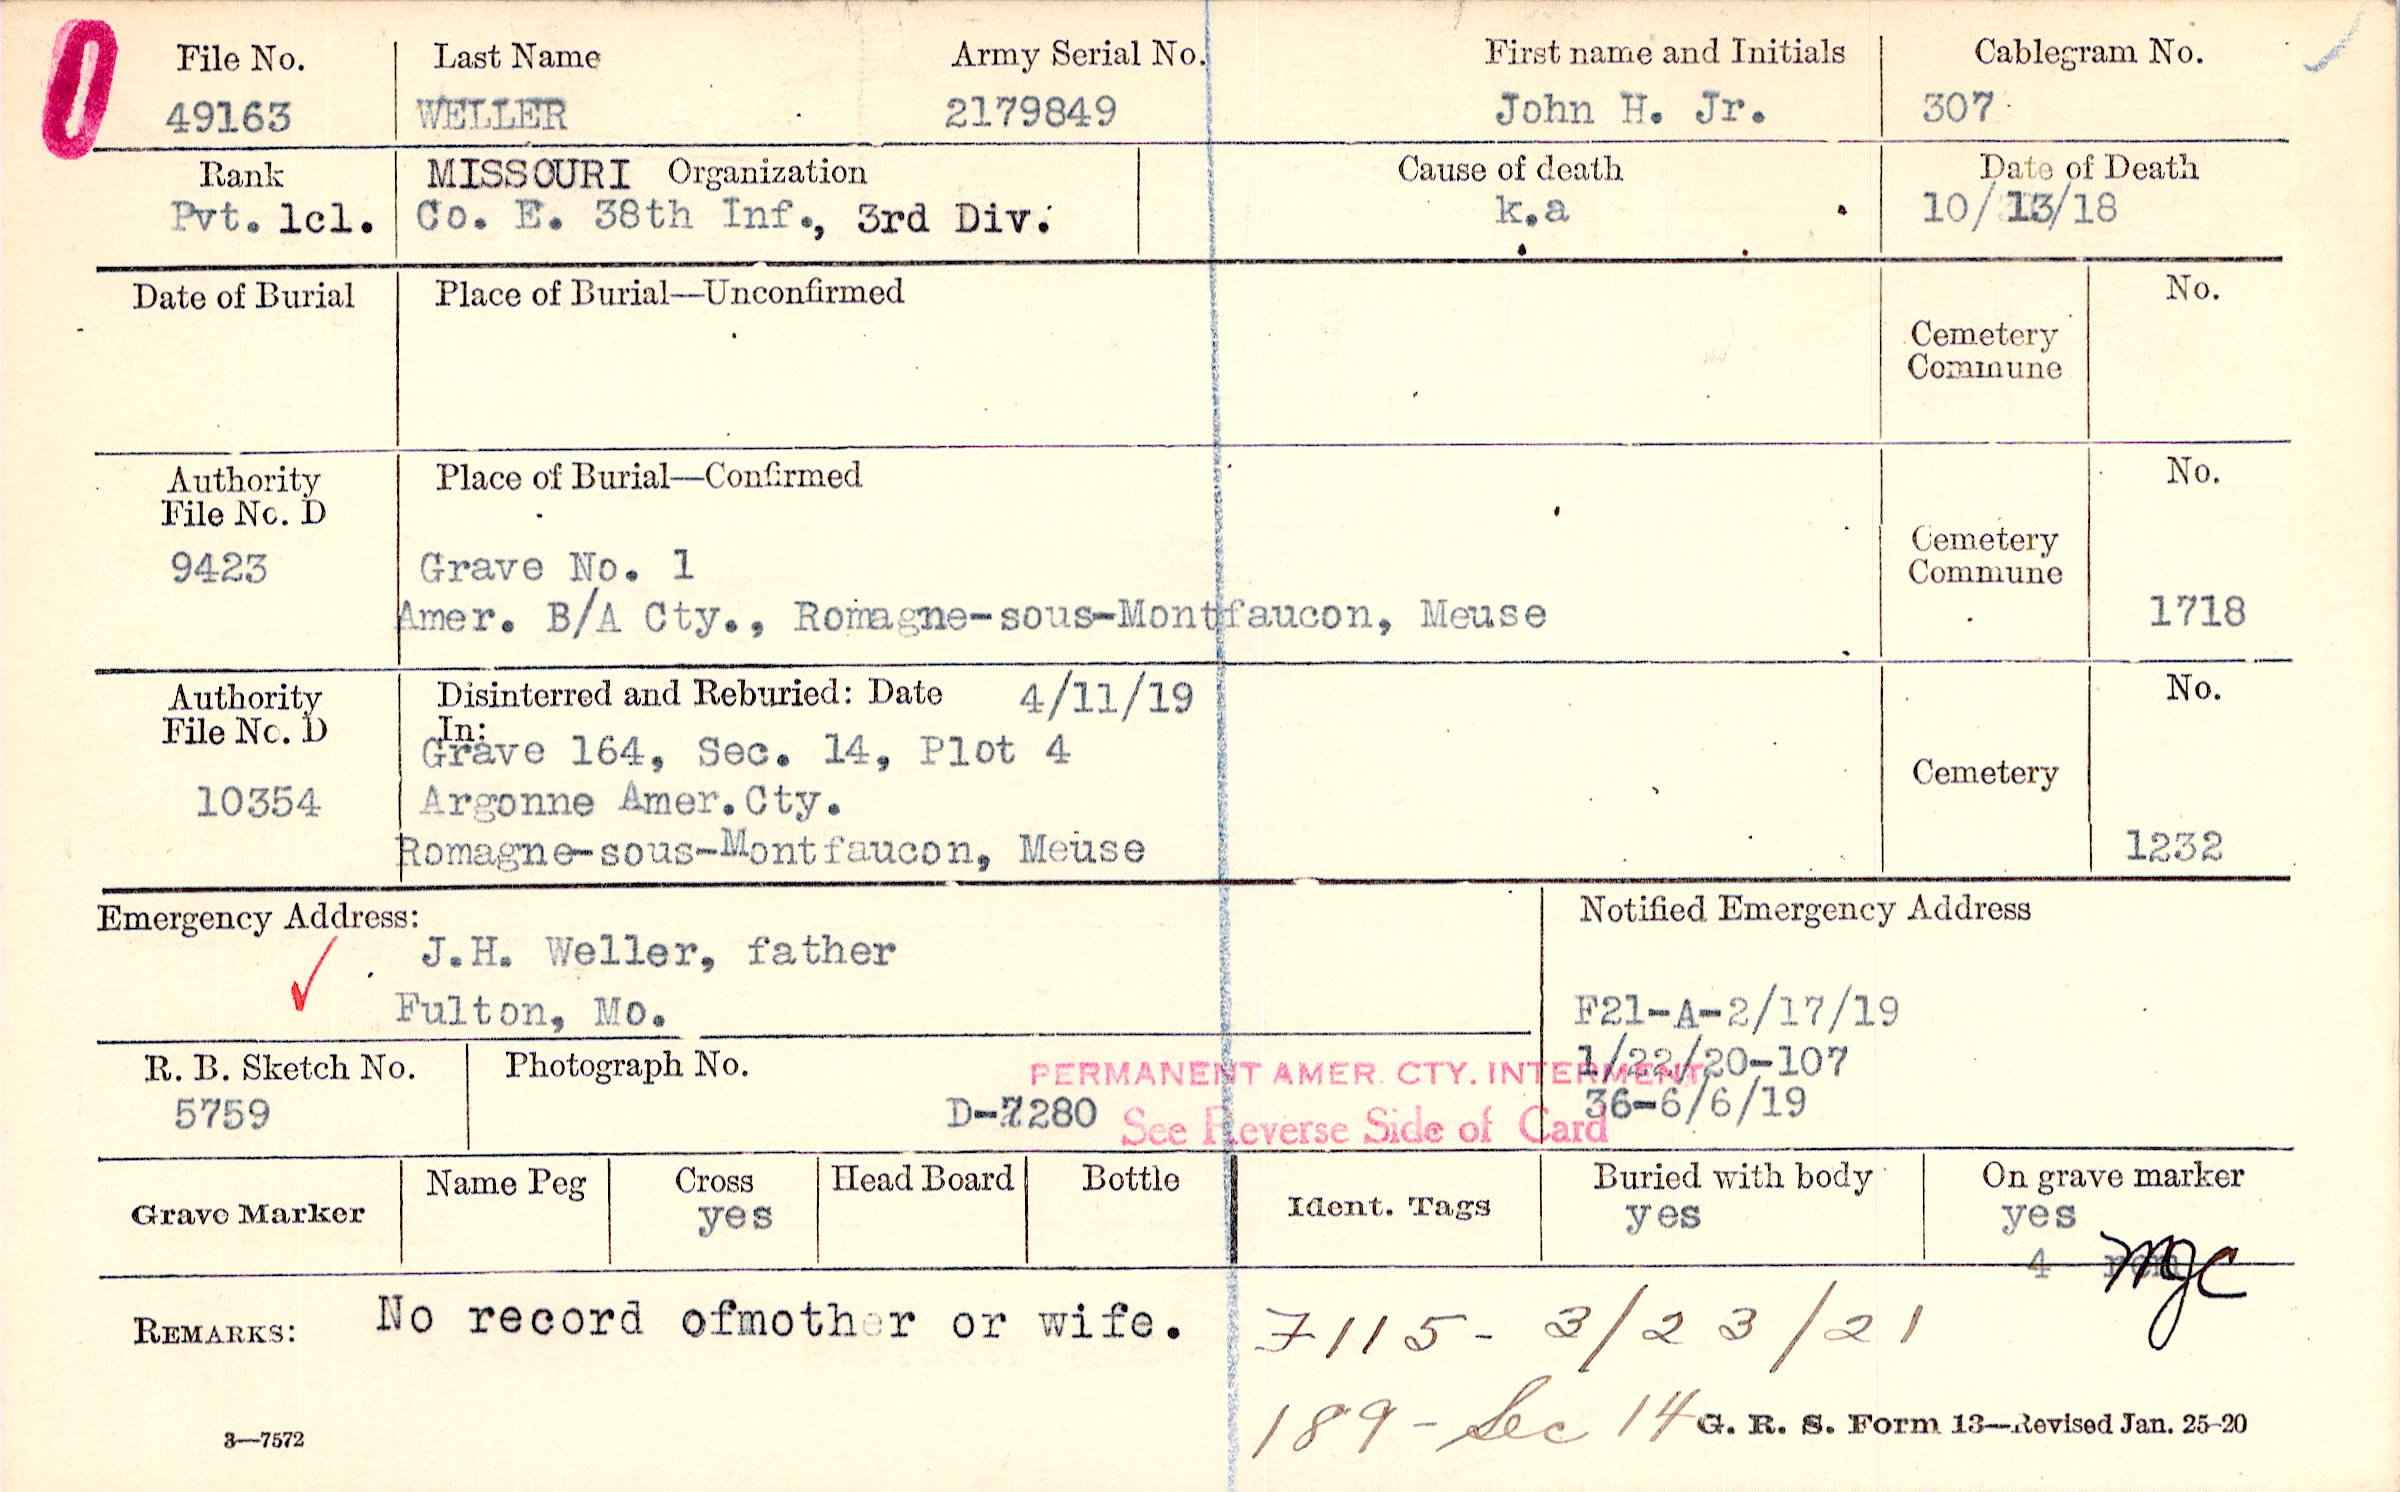 0
File No. Last Name Army Serial No. First name and Initials Cablegram No.
49163 WELLER 2179849 John H. Jr. 307
Rank MISSOURI Organization Cause of death Date of Death
Pvt. 1cl. Co. E. 38th Inf., 3rd Div. k.a 10/13/18
Date of Burial Place of Burial—Unconfirmed No.
Cemetery
Commune
Authority Place of Burial—Confirmed No.
File No. D
Cemetery
9423 Grave No. 1 Commune
Amer. B/A Cty., Romagne-sous-Montfaucon, Meuse 1718
Authority Disinterred and Reburied: Date 4/11/19 No.
File No. D In:
Grave 164, Sec. 14, Plot 4
Cemetery
10354 Argonne Amer.Cty.
Romagne-sous-Montfaucon, Meuse 1232
Emergency Address: Notified Emergency Address
J.H. Weller, father
Fulton, Mo. F21-A-2/17/19
R. B. Sketch No. Photograph No. PERMANENT AMER. CTY. INTERMENT 1/22/20-107
5759 D-7280 See Reverse Side of Card 36-6/6/19
Grave Marker Name Peg Cross Head Board Bottle Ident. Tags Buried with body On grave marker
yes yes yes
4 MJC
REMARKS: No record ofmother or wife. 7115- 3/23/21
189 - Sec 14
3—7572 G. R. S. Form 13—Revised Jan. 25-20